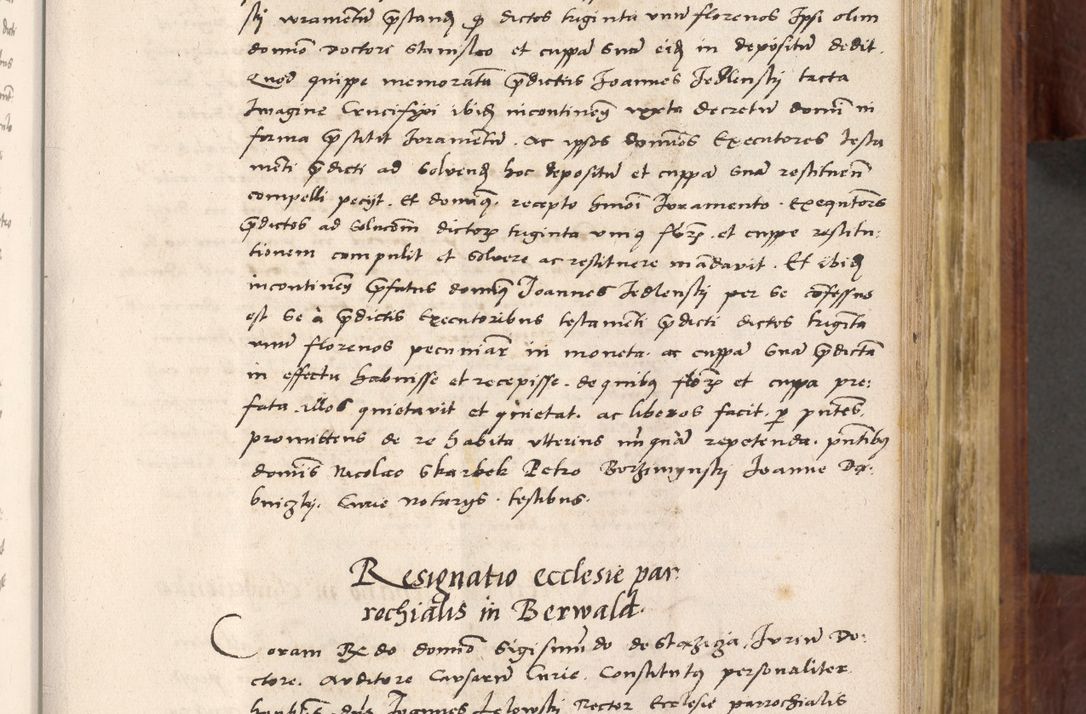 skj iuramentũ p̃standũ q̃ dictos triginta unũ florenos Ipsi olim
domino doctore Stanislao et cuppã suã eidẽ in depositũ dedit.
Quod quippe memoratũ p̃dictus Joannes Jedlenskj tacta
Imagine Crucifixi ibidẽ incontinenti iuxta decretũ domini in
forma p̃stitit Juramentũ. Ac ipsos dominos Executores testa
menti p̃dicti ad solvendũ hoc depositũ et cuppã suã restituendã
compelli pecijt. Et dominus, recepto hmõi Juramento. Exequutores
p̃dictos ad solucõm dictorũ triginta unius florenorũ. et cuppe restitu:
tionem compulit et solvere ac restituere mãdavit. Et ibidẽ
incontinenti p̃fatus dominus Joannes Jedlenskj per se cõfessus
est se à p̃dictis Executoribus testamẽti p̃dicti dictos trigĩta
unũ florenos pecuniarũ in moneta. ac cuppã suã p̃dictã
in effectu habuisse et recepisse. de quibus florenorũ et cuppa pre:
fata. illos quietavit et quietat. ac liberos facit. p̱ pñtes,
promittens de re habita ulterius nũquã repetenda. pñtibus
dominis Nicolao Skarbek Petro Borzimynskj Joanne Dą:
bniczkj. Curie notarijs. testibus.
Resignatio ecclesie par:
rochialis in Berwald.
Coram Rdo domino Sigismũdo de Stązicza, Juriũ Do:
ctore. Auditore Causarũ Curie. Constitutus personaliter
honorabilis. dñs Joannes Lelowskj Rector Ecclesie parrochialis